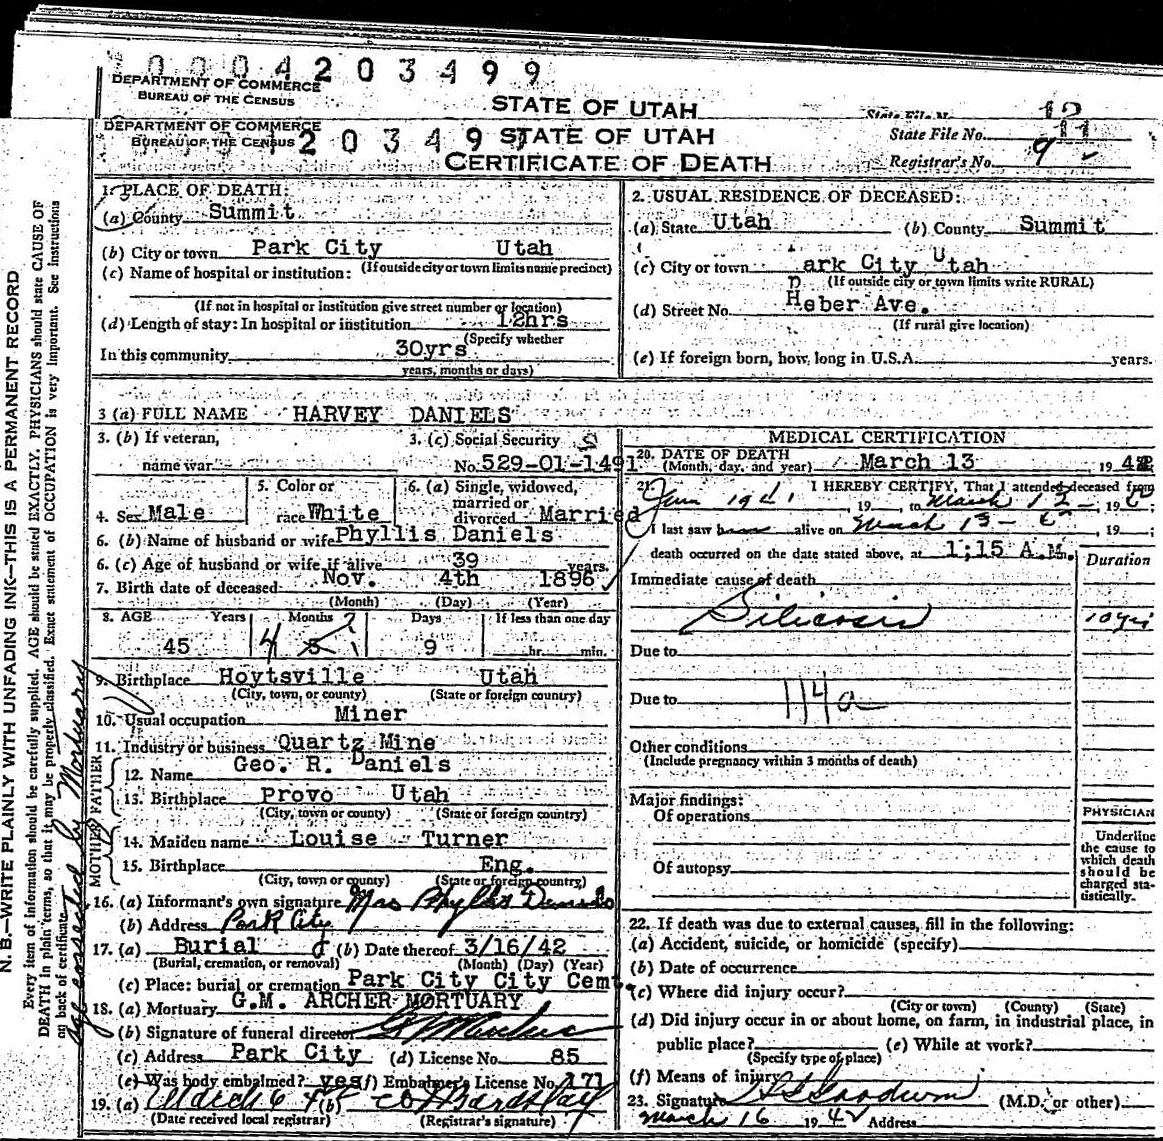 0004203499
DEPARTMENT OF COMMERCE
BUREAU OF THE CENSUS
STATE OF UTAH
State File No. 12
DEPARTMENT OF COMMERCE
BUREAU OF THE CENSUS
203497
STATE OF UTAH
CERTIFICATE OF DEATH
State File No. 11
Registrar's No. 9
N. B.—WRITE PLAINLY WITH UNFADING INK—THIS IS A PERMANENT RECORD
Every item of information should be carefully supplied. AGE should be stated EXACTLY. PHYSICIANS should state CAUSE OF
DEATH in plain terms, so that it may be properly classified. Exact statement of OCCUPATION is very important. See instructions
on back of certificate.
Age corrected by Mortuary
1. PLACE OF DEATH:
(a) County Summit
(b) City or town Park City Utah
(If outside city or town limits name precinct)
(c) Name of hospital or institution:
(If not in hospital or institution give street number or location)
(d) Length of stay: In hospital or institution 12hrs
(Specify whether
In this community 30yrs
years, months or days)
2. USUAL RESIDENCE OF DECEASED:
(a) State Utah (b) County Summit
(c) City or town Park City Utah
(If outside city or town limits write RURAL)
(d) Street No. Heber Ave.
(If rural give location)
(e) If foreign born, how long in U.S.A. years.
3 (a) FULL NAME HARVEY DANIELS
3. (b) If veteran,
name war
3. (c) Social Security
No. 529-01-1491
4. Sex Male
5. Color or
race White
6. (a) Single, widowed,
married or
divorced Married
6. (b) Name of husband or wife Phyllis Daniels
6. (c) Age of husband or wife if alive 39 years.
7. Birth date of deceased Nov. 4th 1896
(Month) (Day) (Year)
8. AGE Years Months Days If less than one day
45 4 5 9 hr. min.
9. Birthplace Hoytsville Utah
(City, town, or county) (State or foreign country)
10. Usual occupation Miner
11. Industry or business Quartz Mine
FATHER
12. Name Geo. R. Daniels
13. Birthplace Provo Utah
(City, town or county) (State or foreign country)
MOTHER
14. Maiden name Louise Turner
15. Birthplace Eng.
(City, town or county) (State or foreign country)
16. (a) Informant's own signature Mrs Phyllis Daniels
(b) Address Park City
17. (a) Burial (b) Date thereof 3/16/42
(Burial, cremation, or removal) (Month) (Day) (Year)
(c) Place: burial or cremation Park City City Cemt.
18. (a) Mortuary G.M. ARCHER MORTUARY
(b) Signature of funeral director
(c) Address Park City (d) License No. 85
(e) Was body embalmed? yes (f) Embalmer's License No. 171
19. (a) (b)
(Date received local registrar) (Registrar's signature)
MEDICAL CERTIFICATION
20. DATE OF DEATH
(Month, day, and year) March 13 1942
21. I HEREBY CERTIFY, That I attended deceased from
Jan 1941, 19 , to March 12, 19 ;
I last saw him alive on March 13, 19 ;
death occurred on the date stated above, at 1;15 A.M.
Duration
Immediate cause of death
Silicosis 10 yrs
Due to
Due to 114a
Other conditions
(Include pregnancy within 3 months of death)
Major findings:
Of operations
Of autopsy
PHYSICIAN
Underline
the cause to
which death
should be
charged sta-
tistically.
22. If death was due to external causes, fill in the following:
(a) Accident, suicide, or homicide (specify)
(b) Date of occurrence
(c) Where did injury occur?
(City or town) (County) (State)
(d) Did injury occur in or about home, on farm, in industrial place, in
public place? (e) While at work?
(Specify type of place)
(f) Means of injury
23. Signature Goodwin (M.D. or other)
March 16 1942 Address